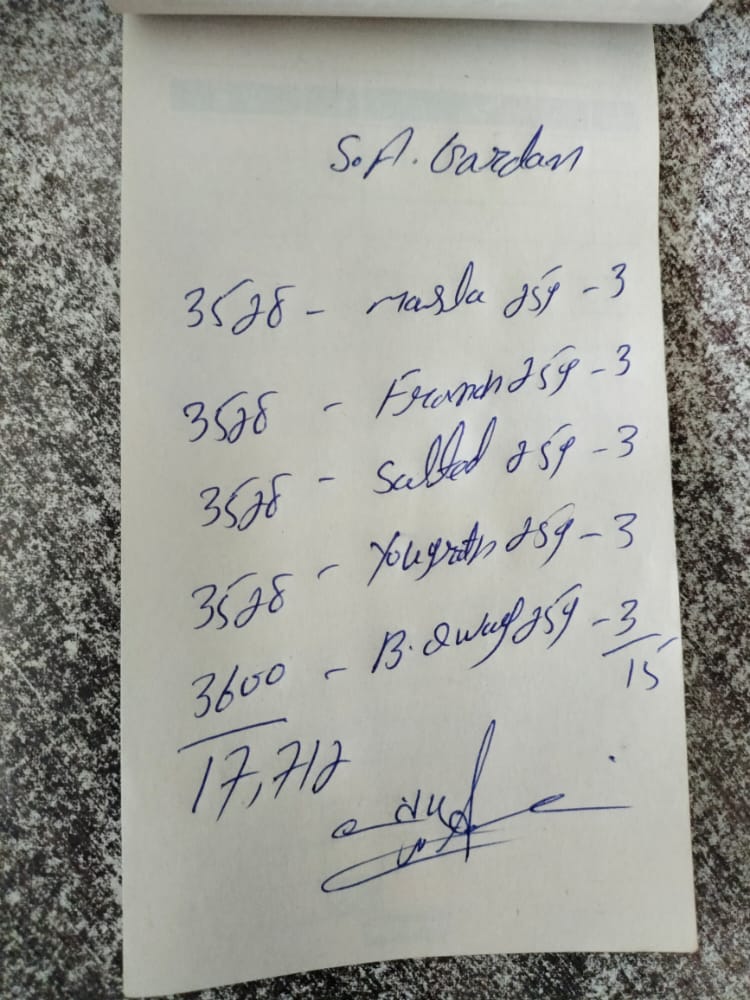 S.A. Gardan
3528 - masla 25g - 3
3528 - French 25g - 3
3528 - Salted 25g - 3
3528 - Yougrth 25g - 3
3600 - B. 25g - 3
17,712 15